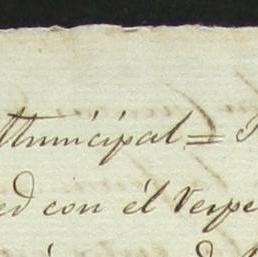 Municipal =
ed con él Verpe